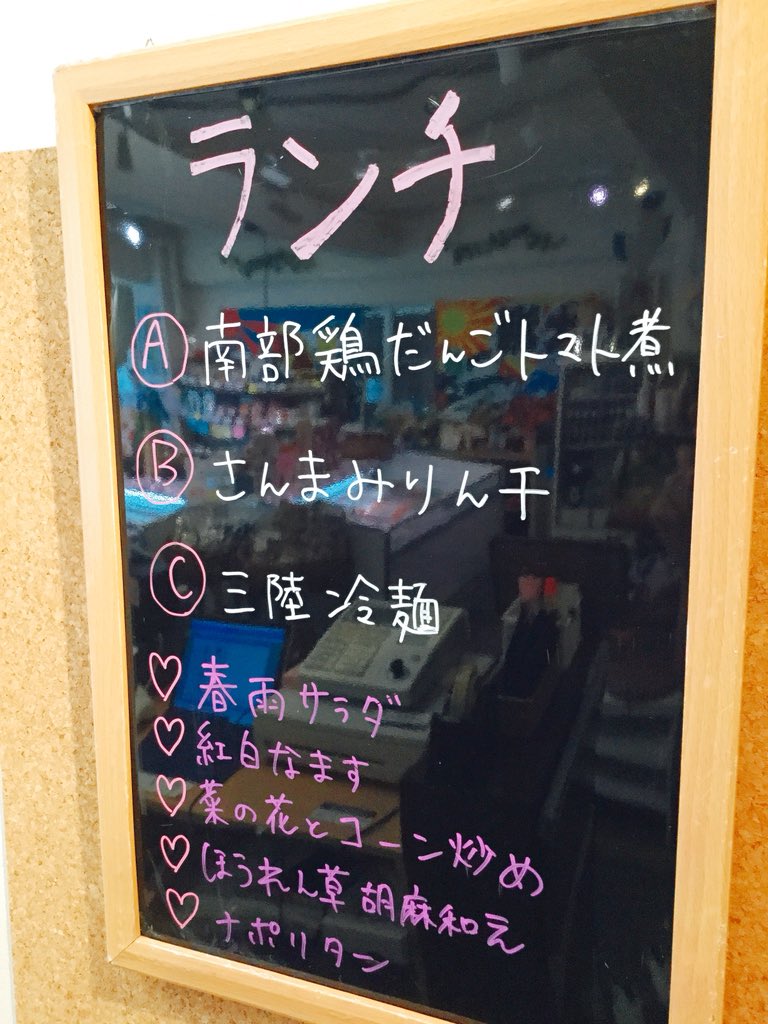 ランチ
Ⓐ 南部鶏だんごトマト煮
Ⓑ さんまみりん干
Ⓒ 三陸冷麺
♡ 春雨サラダ
♡ 紅白なます
♡ 菜の花とコーン炒め
♡ ほうれん草胡麻和え
♡ ナポリタン